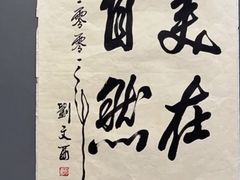 美在
自然
二零零二年
劉文西